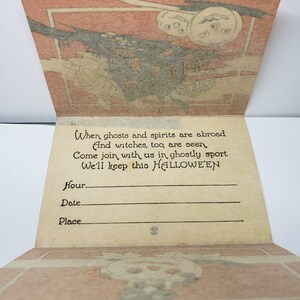 When ghosts and spirits are abroad
And witches, too, are seen,
Come join with us in ghostly sport
We'll keep this HALLOWE'EN
Hour
Date
Place